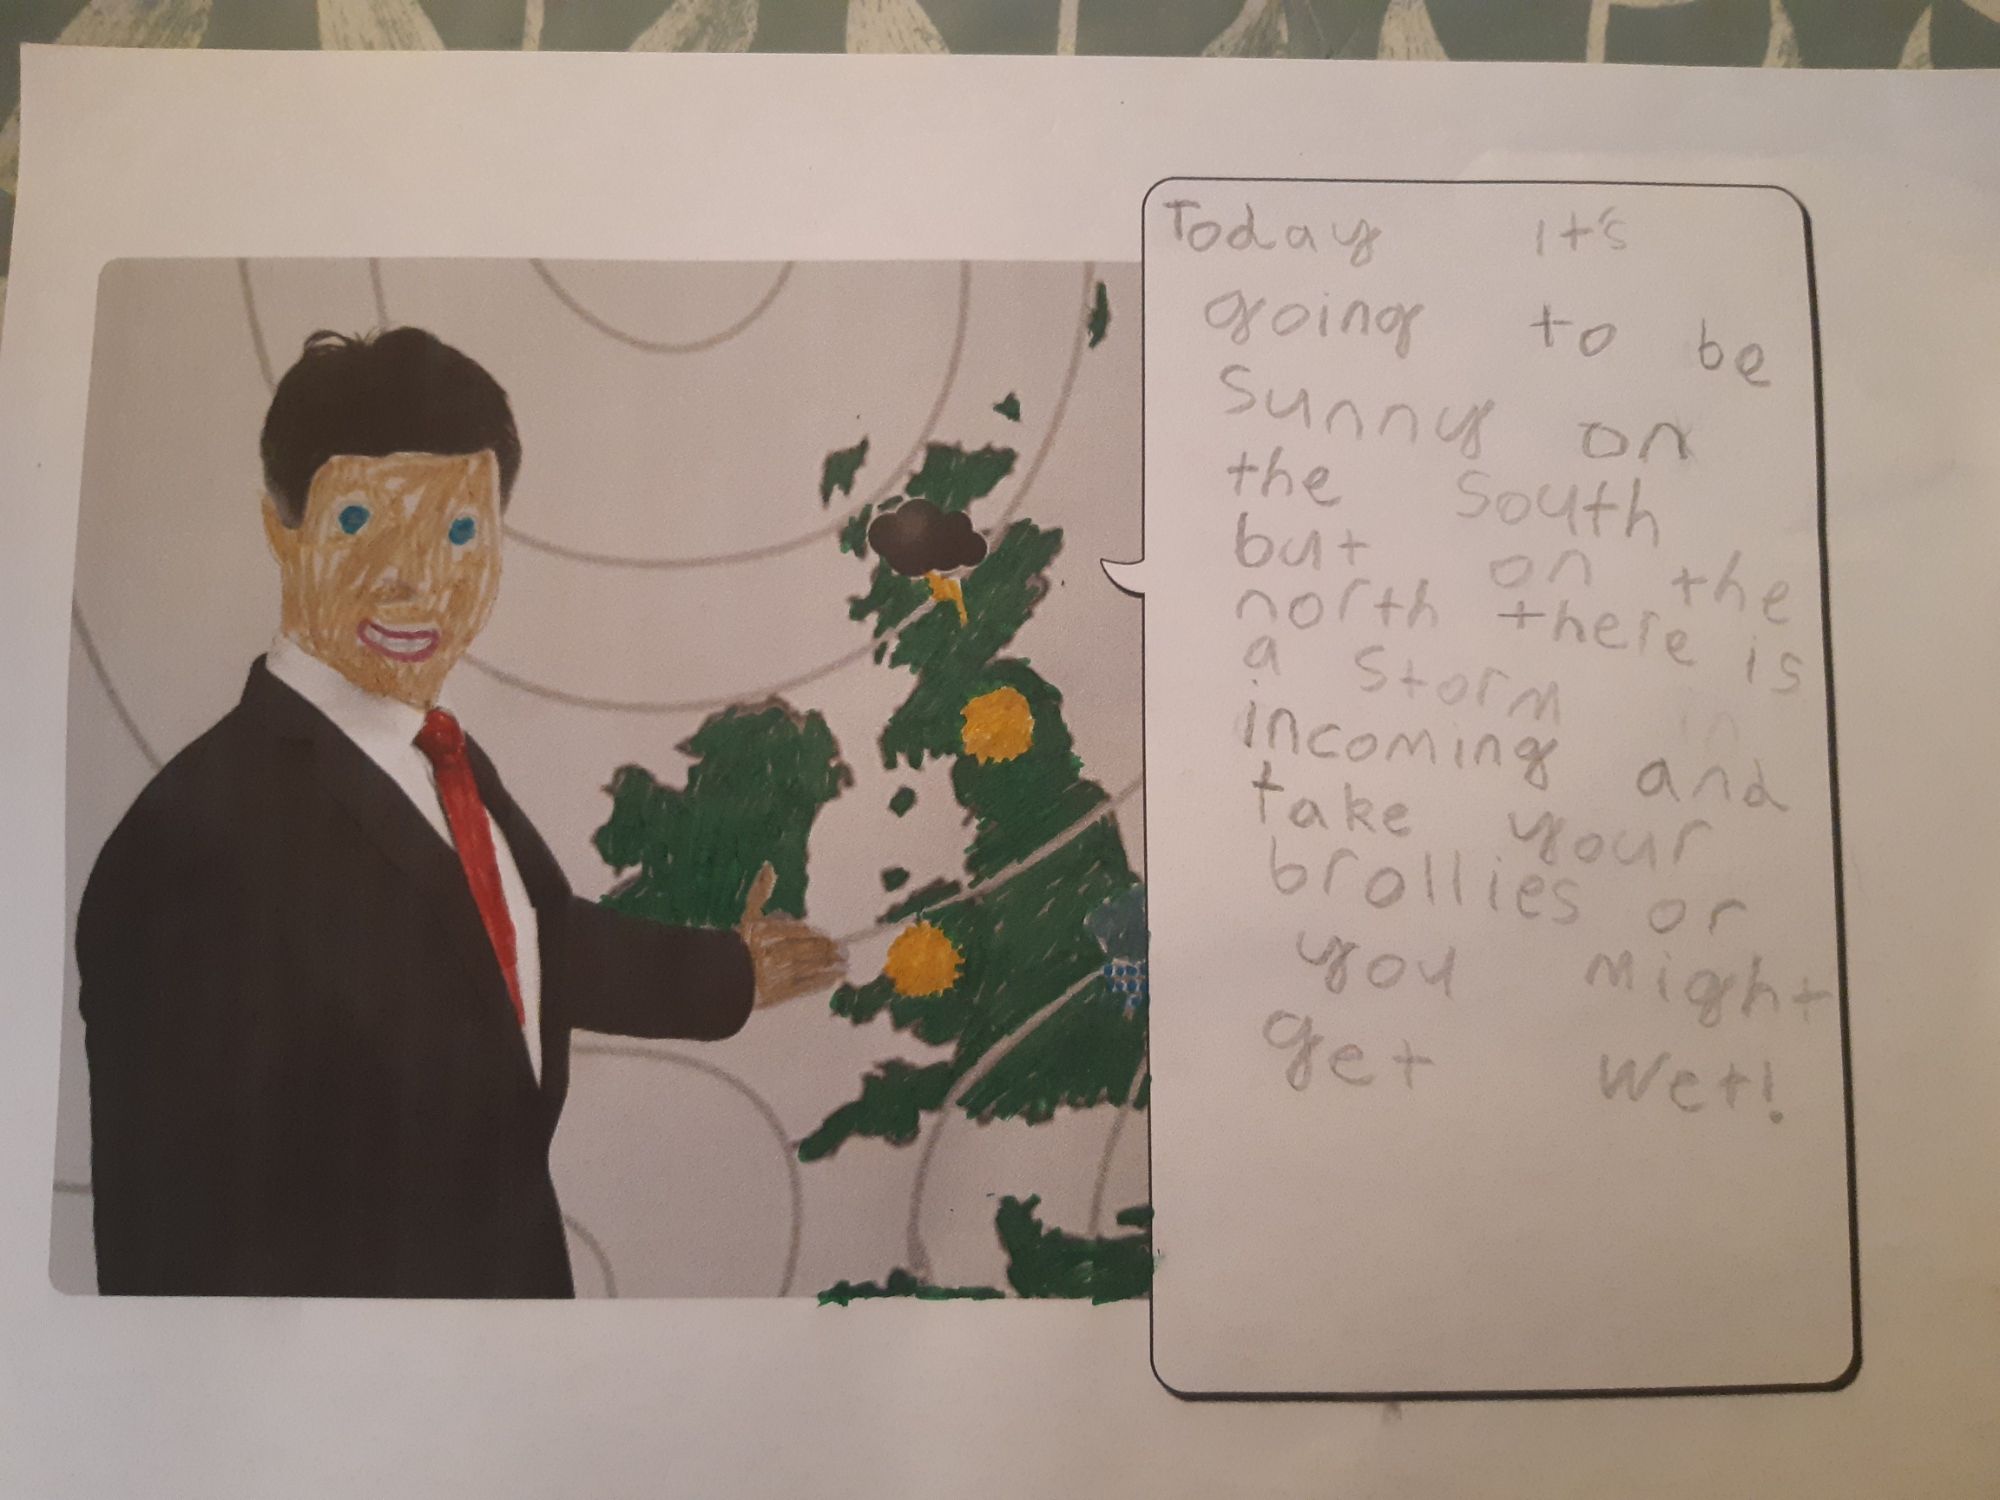 Today it's
going to be
Sunny on
the South
but on the
north there is
a storm in
incoming and
take your
brollies or
you might
get wet!